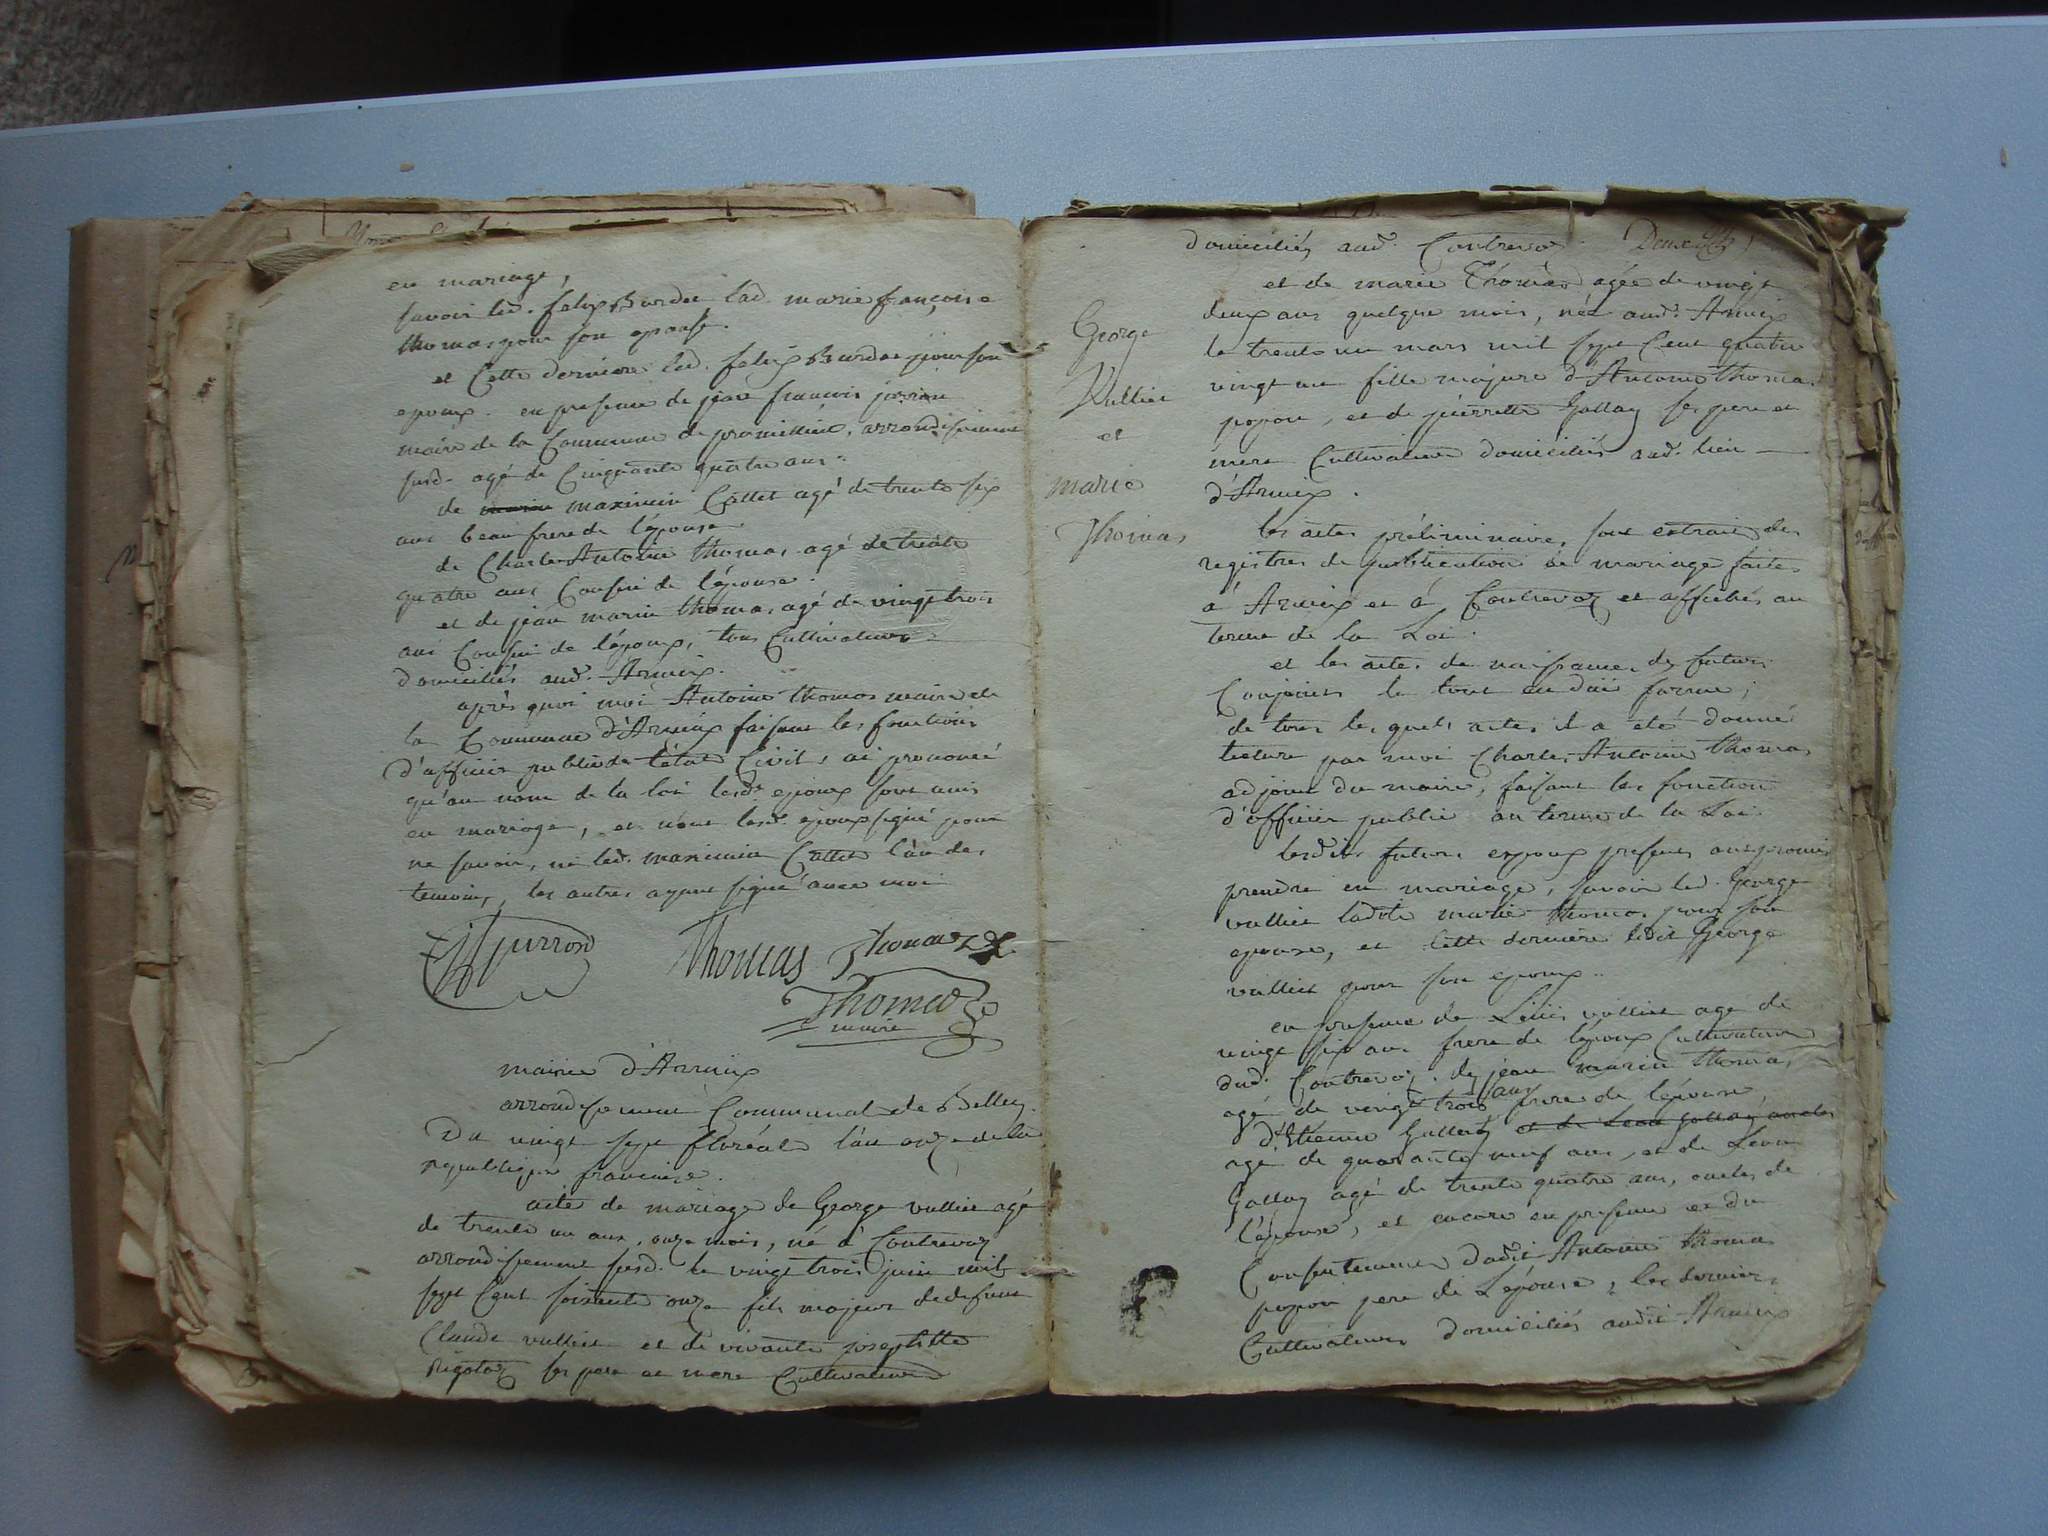 en mariage,
savoir led. felix Burdet lad. marie françoise
thomas pour son epouse.
et cette derniere led. felix Burdet pour son
epoux. en presence de jean francois
maire de la Commune de premillieu, arrondissement
susd. agé de Cinquante quatre ans.
de maximin Callet agé de trente six
ans beau frere de lépouse
de Charle Antoine thomas agé de trente
quatre ans Cousin de lépouse.
et de jean marie thomas agé de vingt trois
ans Cousin de lépoux, tous Cultivateurs
domiciliés aud. Armix.
après quoi moi Antoine thomas maire de
la Commune d'Armix faisant les fonctions
d'officier public de létat Civil, ai prononcé
qu'au nom de la loi lesd. epoux sont unis
en mariage, et n'ont lesd. epoux signé pour
ne savoir, ni led. maximin Callet l'un des
temoins, les autres ayant signé avec moi
Thomas Thomas
Thomas
maire
mairie d'Armix
arrondissement Communal de Belley.
Du vingt sept floréal l'an onze de la
republique francaise.
acte de mariage de George vullier agé
de trente un ans, onze mois, né à Contrevoz
arrondissement susd. le vingt trois juin mil
sept Cent soixante onze fils majeur de defunt
Claude vullier et de vivante josephtte
Rigolet ses pere et mere Cultivateurs
domiciliés aud. Contrevoz
et de marie Thomas agée de vingt
deux ans quelque mois, née aud. Armix
le trente un mars mil sept Cent quatre
vingt un fille majeure d'Antoine thomas
popon, et de pierrette Gallay ses pere et
mere Cultivateurs domiciliés aud. lieu
d'Armix.
George
Vullier
et
marie
Thomas
les actes préliminaires sont extraits des
registres de publication de mariage faites
à Armix et à Contrevoz et affichés au
terme de la Loi.
et les actes de naissance des futurs
Conjoints le tout en düe forme;
de tous les quels actes il a eté donné
lecture par moi Charle Antoine thomas
adjoint du maire, faisant les fonction
d'officier public au terme de la Loi
lesdits futurs epoux presents ont promis
prendre en mariage, savoir led. George
vullier ladite marie thomas pour son
epouse, et cette derniere ledit George
vullier pour son epoux.
en presence de vullier agé de
vingt six ans frere de lépoux Cultivateur
dud. Contrevoz, de jean marie thomas
agé de vingt trois ans frere de lépouse
d'Etienne Gallay et de Leon Gallay oncles
agé de quarante neuf ans, et de Leon
Gallay agé de trente quatre ans, oncles de
lépouse, et encore en presence et du
Consentement dudit Antoine thomas
popon pere de Lépouse, les derniers
Cultivateurs domiciliés audit Armix